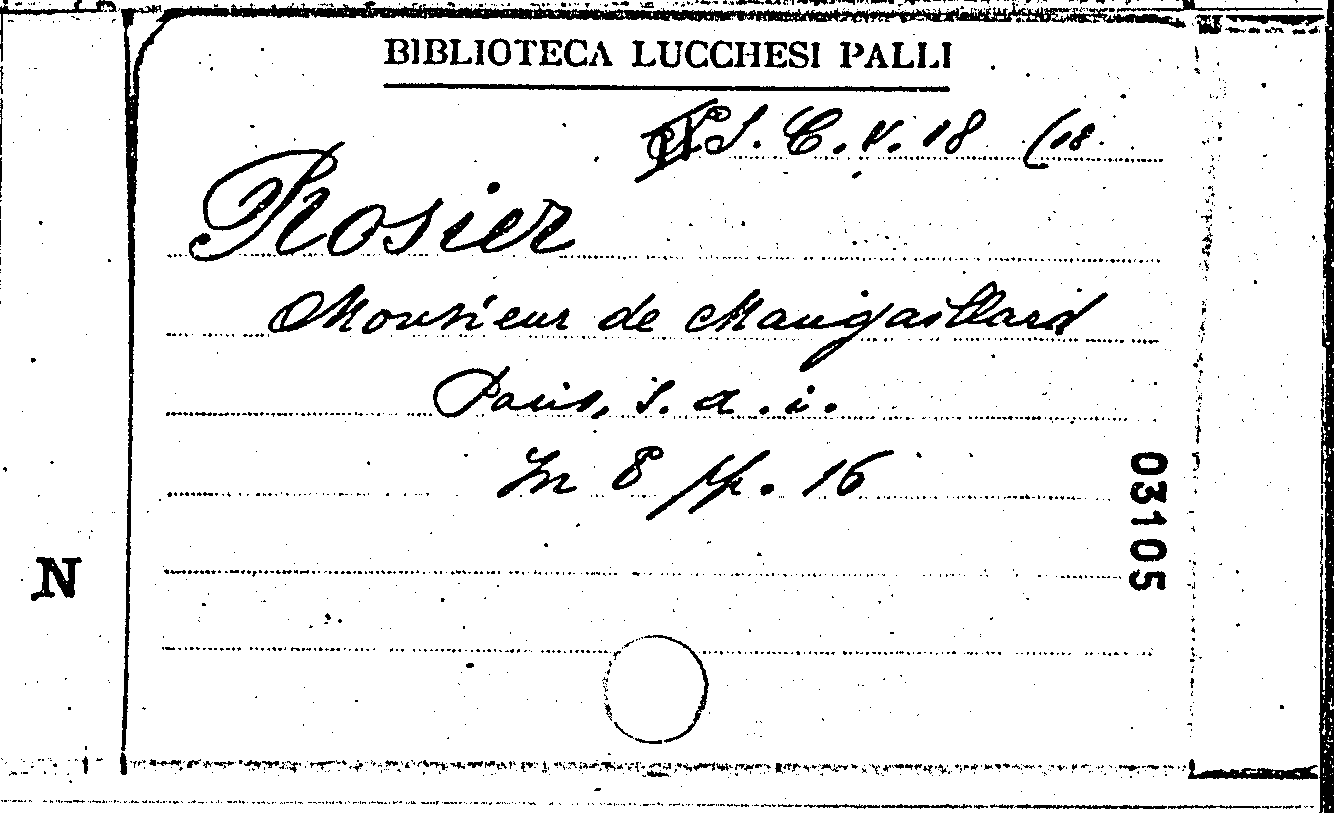 BIBLIOTECA LUCCHESI PALLI
S. C. V. 18 (18.
Rosier
Monsieur de Maugaillard
Paris, s. a. i.
In 8 pp. 16
03105
N